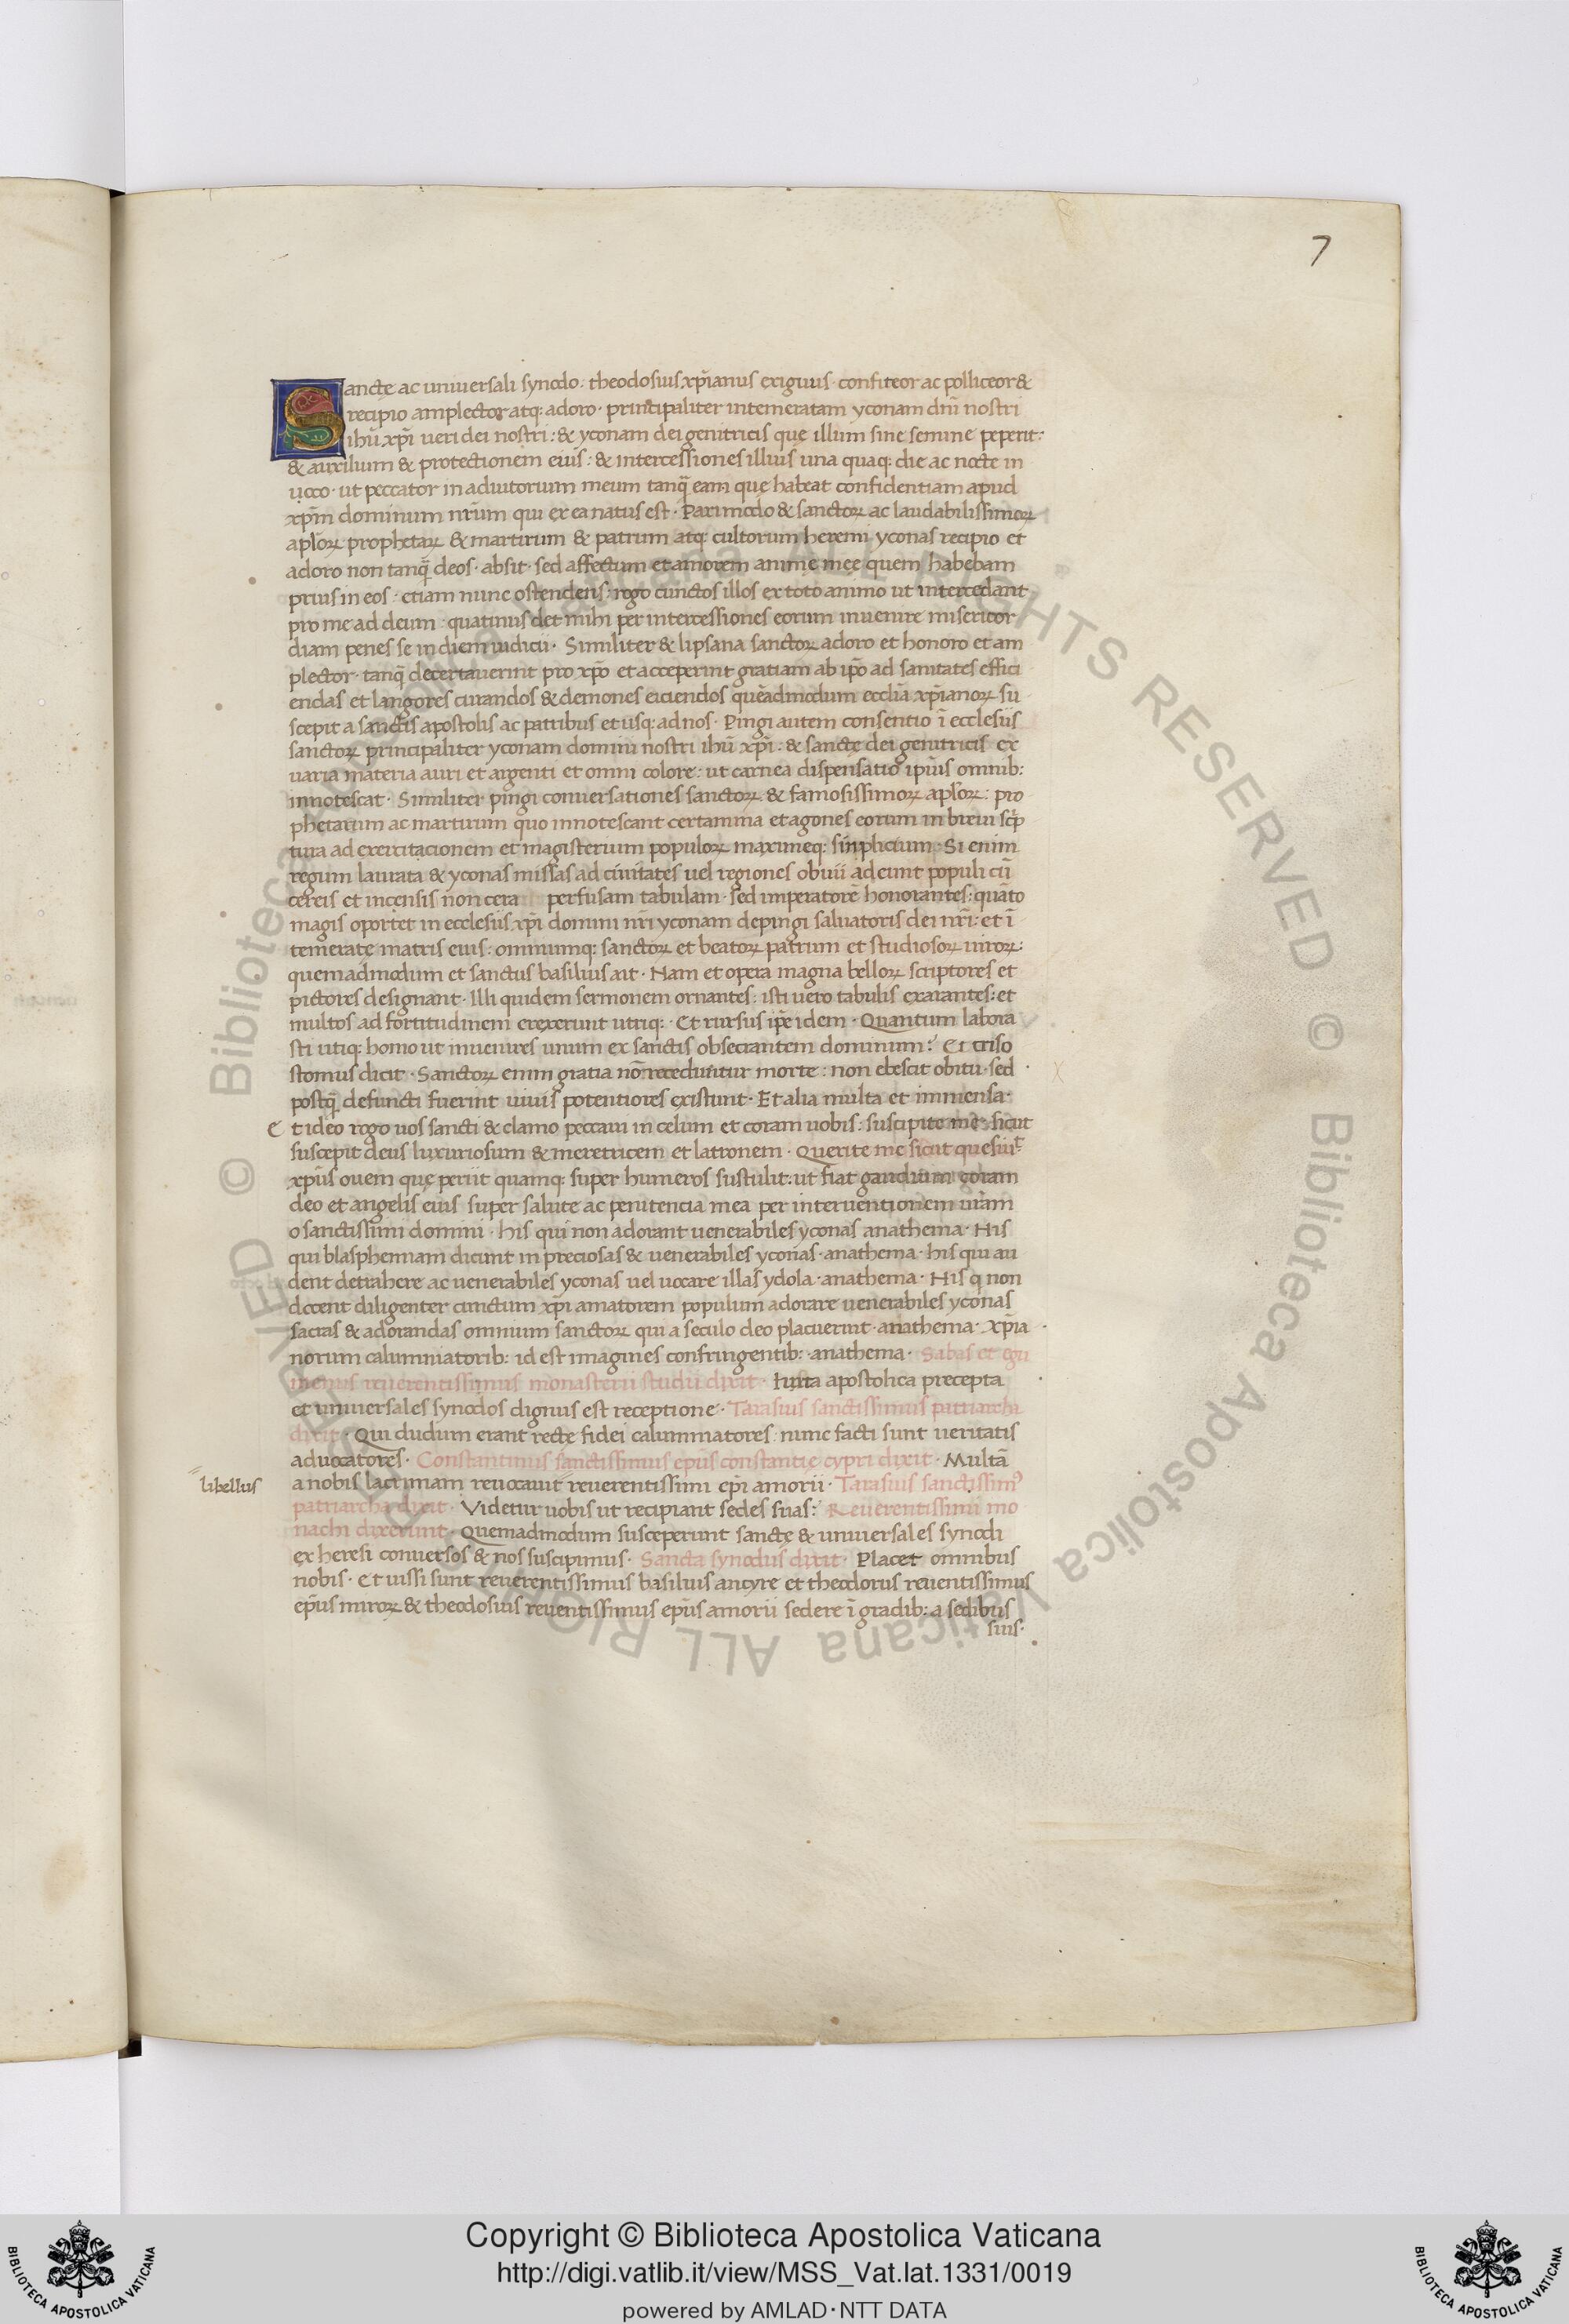 7
Sancte ac uniuersali synodo: theodosius xp̄ianus exiguus· confiteor ac polliceor &
recipio amplector atq: adoro· principaliter intemeratam yconam dn̄i nostri
ihū xp̄i ueri dei nostri: & yconam dei genitricis que illum sine semine peperit:
& auxilium & protectionem eius: & intercessiones illius una quaq: die ac nocte in
uoco· ut peccator in adiutorium meum tanq̄ eam quę habeat confidentiam apud
xp̄m dominum nr̄um qui ex ea natus est· Pari modo & sanctoꝝ ac laudabilissimoꝝ
apl̄oꝝ prophetaꝝ & martirum & patrum atq: cultorum heremi yconas recipio et
adoro non tanq̄ deos· absit· sed affectum et amorem animę meę quem habebam
prius in eos: etiam nunc ostendens: rogo cunctos illos ex toto animo ut intercedant
pro me ad deum: quatinus det mihi per intercessiones eorum inuenire misericor
diam penes se in diem iudicii· Similiter & lipsana sanctoꝝ adoro et honoro et am
plector· tanq̄ decertauerint pro xp̄o et acceperint gratiam ab ip̄o ad sanitates effici
endas et langores curandos & demones eiciendos quēadmodum ecclīa xp̄ianoꝝ su
scepit a sanctis apostolis ac patribus et usq: ad nos· Pingi autem consentio ī ecclesiis
sanctoꝝ principaliter yconam domini nostri ihū xp̄i: & sanctę dei genitricis ex
uaria materia auri et argenti et omni colore: ut carnea dispensatio ip̄ius omnib:
innotescat· Similiter pingi conuersationes sanctoꝝ & famosissimoꝝ apl̄oꝝ: pro
phetarum ac martirum quo innotescant certamina et agones eorum in breui scp̄
tura ad exercitacionem et magisterium populoꝝ maximeq: simplicium· Si enim
regum laurata & yconas missas ad ciuitates uel regiones obuii adeunt populi cū
cereis et incensis non cera perfusam tabulam· sed imperatorē honorantes: quāto
magis oportet in ecclesiis xp̄i domini nr̄i yconam depingi saluatoris dei nr̄i: et ī
temeratę matris eius: omniumq: sanctoꝝ et beatoꝝ patrum et studiosoꝝ uiroꝝ:
quemadmodum et sanctus basilius ait· Nam et opera magna belloꝝ scriptores et
pictores designant· Illi quidem sermonem ornantes: isti uero tabulis exarantes: et
multos ad fortitudinem erexerunt utriq:· Et rursus ip̄e idem· Quantum labora
sti utiq: homo ut inuenires unum ex sanctis obsecrantem dominum? Et criso
stomus dicit· Sanctoꝝ enim gratia nō receduntur morte: non ebescit obitu· sed
postq̄ defuncti fuerint uiuis potentiores existunt· Et alia multa et immensa·
Et ideo rogo uos sancti & clamo peccaui in celum et coram uobis: suscipite me· sicut
suscepit deus luxuriosum & meretricem et latronem· Querite me sicut quesiuͭ
xp̄us ouem quę periit quamq: super humeros sustulit: ut fiat gaudium coram
deo et angelis eius super salute ac penitencia mea per interuentionem ur̄am
o sanctissimi domini· his qui non adorant uenerabiles yconas anathema· His
qui blasphemiam dicunt in preciosas & uenerabiles yconas· anathema· his qui au
dent detrahere ac uenerabiles yconas uel uocare illas ydola· anathema· His q non
docent diligenter cunctum xp̄i amatorem populum adorare uenerabiles yconas
sacras & adorandas omnium sanctoꝝ qui a seculo deo placuerint· anathema· Xp̄ia
norum calumniatorib: id est imagines confringentib:· anathema· Sabas et egu
menus reuerentissimus monasterii studii dixit· Iuxta apostolica precepta
et uniuersales synodos dignus est receptione· Tarasius sanctissimus patriarcha
dixit· Qui dudum erant rectę fidei calumniatores: nunc facti sunt ueritatis
aduocatores· Constantinus sanctissimus ep̄us constantię cypri dixit· Multā
libellus
a nobis lacrimam reuocauit reuerentissimi ep̄i amorii· Tarasius sanctissimꝰ
patriarcha dixit· Videtur uobis ut recipiant sedes suas? Reuerentissimi mo
nachi dixerunt· Quemadmodum susceperunt sanctę & uniuersales synodi
ex heresi conuersos & nos suscipimus· Sancta synodus dixit· Placet omnibus
nobis· Et iussi sunt reuerentissimus basilius ancyre et theodorus reuentissimus
ep̄us miroꝝ & theodosius reuentissimus ep̄us amorii sedere ī gradib: a sedibus
suis·
Copyright © Biblioteca Apostolica Vaticana
http://digi.vatlib.it/view/MSS_Vat.lat.1331/0019
powered by AMLAD·NTT DATA
BIBLIOTECA APOSTOLICA VATICANA
BIBLIOTECA APOSTOLICA VATICANA